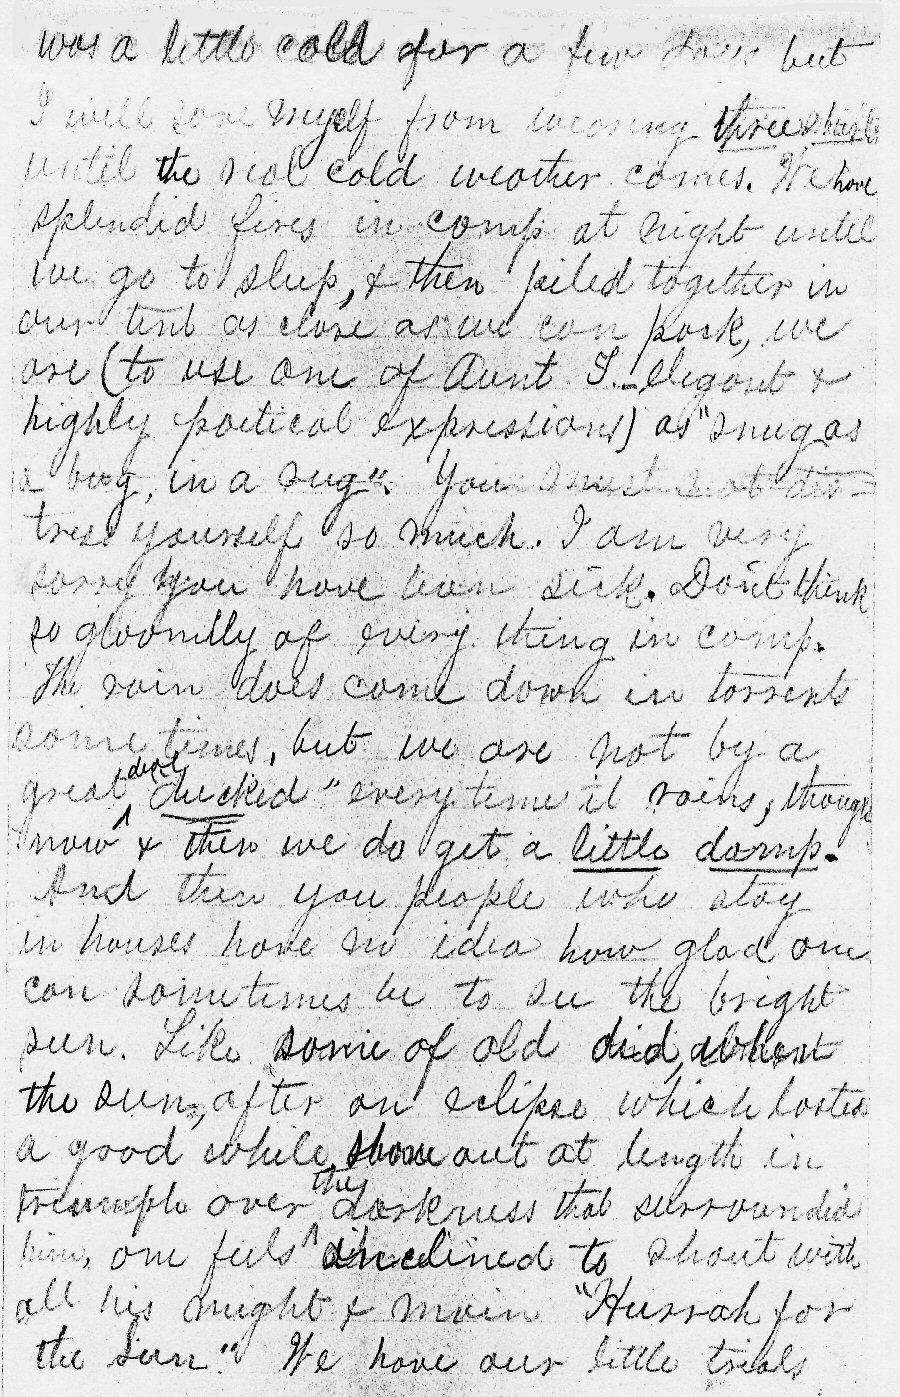 was a little cold for a few days but
I will save myself from wearing three shirts
until the real cold weather comes. We have
splendid fires in camp at night until
we go to sleep, & then piled together in
our tent as close as we can pack, we
are (to use one of Aunt S. elegant &
highly poetical expressions) as "snug as
a bug, in a rug". You must not dis-
tress yourself so much. I am very
sorry you have been sick. Don't think
so gloomily of every thing in camp.
The rain does come down in torrents
some times, but we are not by a
great deal "ducked" every time it rains, though
now & then we do get a little damp.
And then you people who stay
in houses have no idea how glad one
can sometimes be to see the bright
sun. Like some of old did, when
the sun, after an eclipse which lasted
a good while shone out at length in
triumph over the darkness that surrounded
him, one feels inclined to shout with
all his might & main "Hurrah for
the Sun". We have our little trials